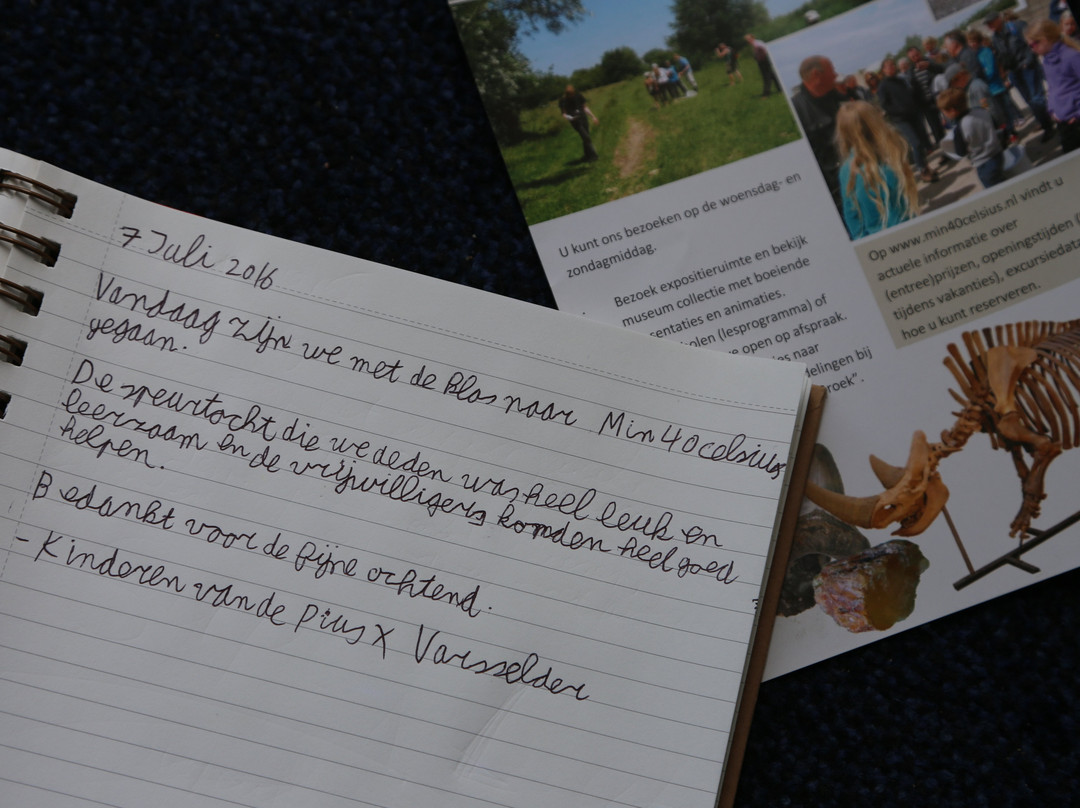 7 Juli 2016
Vandaag zijn we met de klas naar Min40celsius
gegaan.
De speurtocht die we deden was heel leuk en
leerzaam en de vrijwilligers konden heel goed
helpen.
Bedankt voor de fijne ochtend.
- Kinderen van de Pius X Varsselder
U kunt ons bezoeken op de woensdag- en
zondagmiddag.
Bezoek expositieruimte en bekijk
museum collectie met boeiende
sentaties en animaties.
olen (lesprogramma) of
e open op afspraak.
es naar
delingen bij
roek".
Op www.min40celsius.nl vindt u
actuele informatie over
(entree)prijzen, openingstijden (
tijdens vakanties), excursiedata
hoe u kunt reserveren.